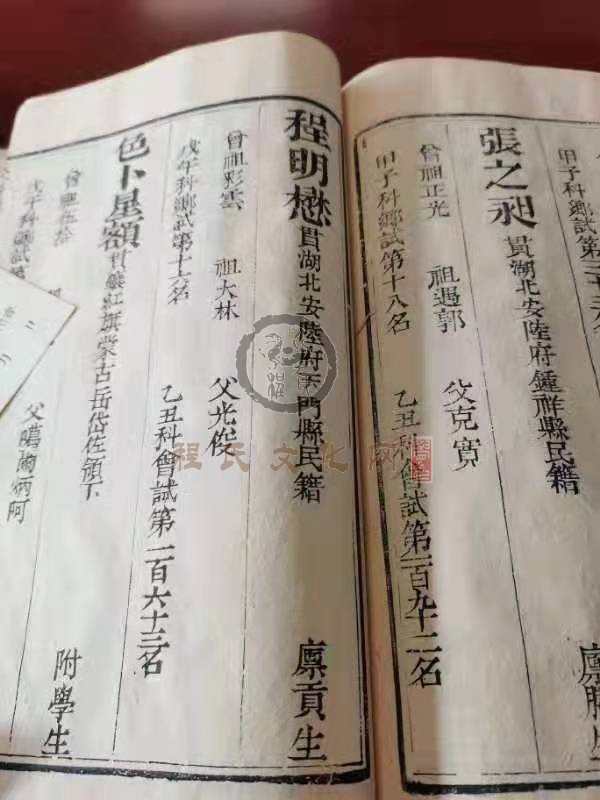 張之昶 貫湖北安陸府鍾祥縣民籍
曾祖正光 祖遇郭 父克實
甲子科鄉試第十八名 乙丑科會試第一百九十二名
程明懋 貫湖北安陸府天門縣民籍 廪貢生
曾祖彩雲 祖大林 父光俊
戊午科鄉試第十七名 乙丑科會試第一百六十三名
色卜星額 貫鑲紅旗蒙古岳岱佐領下 附學生
曾祖五拾
父
戊子科鄉試第
甲子科鄉試第三十
程氏文化网